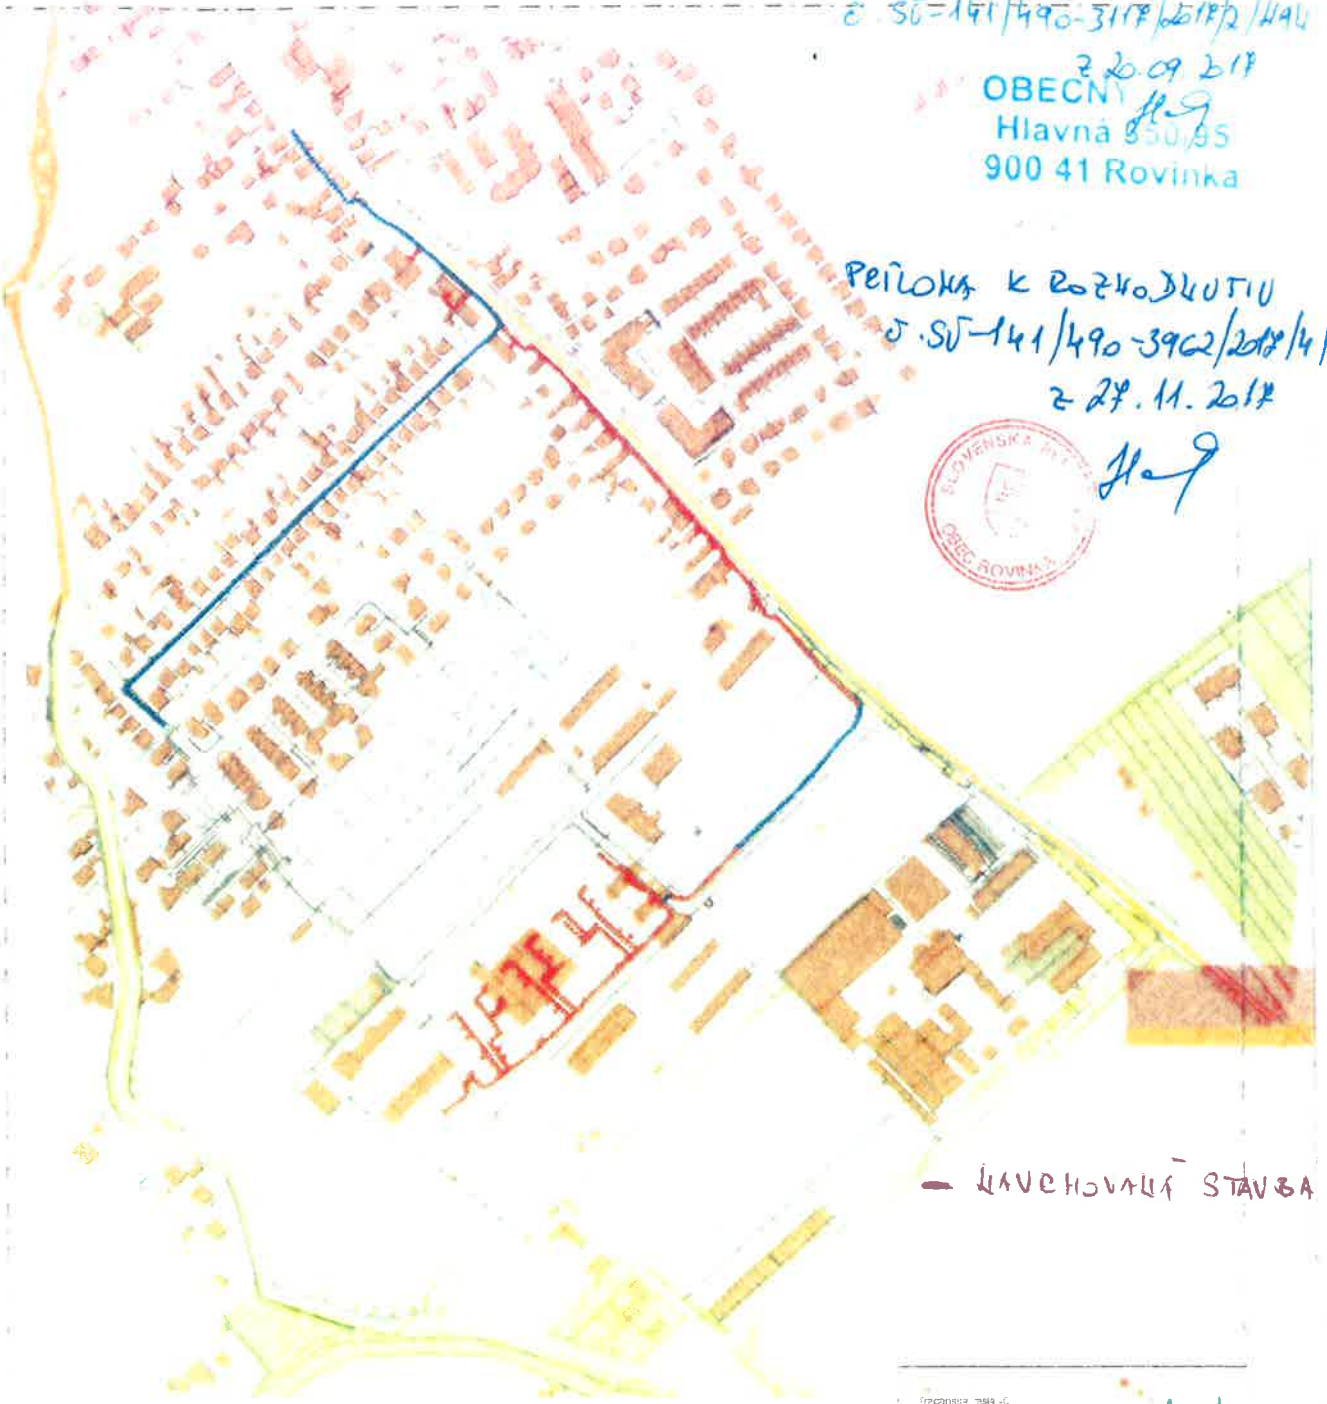 č. SÚ-141/490-3117/2017/2/HAU
z 20.09.2017
OBECNÝ
Hlavná 350/95
900 41 Rovinka
PRÍLOHA K ROZHODNUTIU
č. SÚ-141/490-3962/2017/4/
z 27.11.2017
SLOVENSKÁ
OBEC ROVINKA
— NAVRHOVANÁ STAVBA